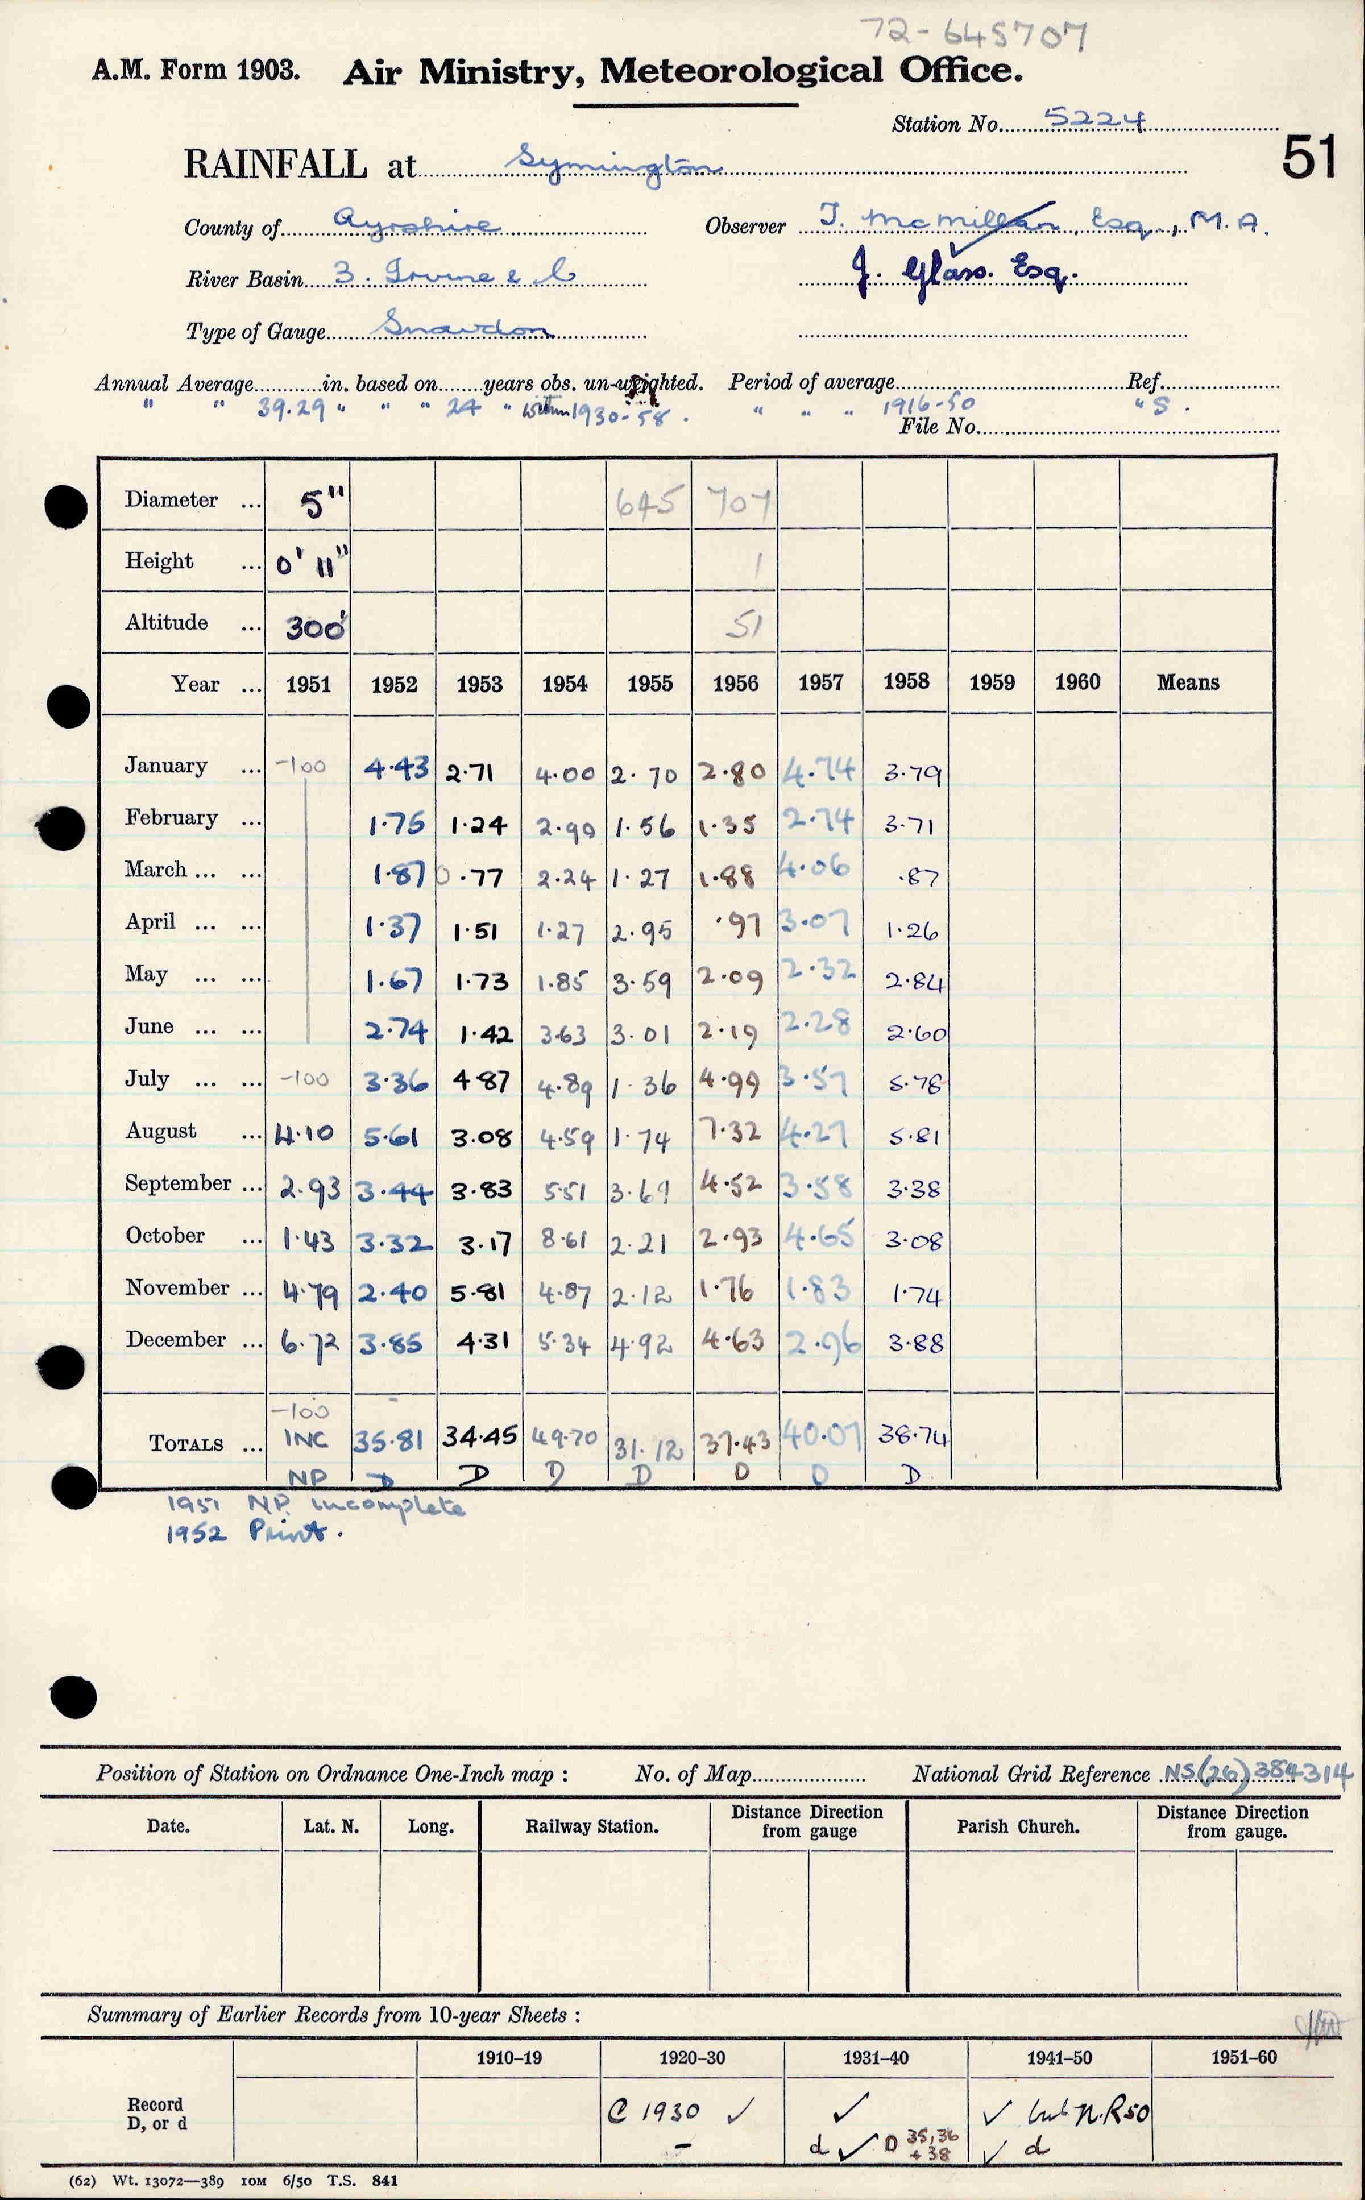 72-645707
A.M. Form 1903. Air Ministry, Meteorological Office.
Station No. 5224
51
RAINFALL at Symington
County of Ayrshire Observer T. McMillan, Esq., M.A.
River Basin 3. Irvine & C J. Glass. Esq.
Type of Gauge Snowdon
Annual Average in. based on years obs. un-weighted. Period of average Ref.
" " 39.29 " " " 24 " within 1930-58. " " " 1916-50 " S.
File No.
Diameter ... 5" 645 707
Height ... 0' 11" 1
Altitude ... 300' 51
Year ... 1951 1952 1953 1954 1955 1956 1957 1958 1959 1960 Means
January ... -100 4.43 2.71 4.00 2.70 2.80 4.74 3.79
February ... 1.75 1.24 2.99 1.56 1.35 2.74 3.71
March ... ... 1.87 0.77 2.24 1.27 1.88 4.06 .87
April ... ... 1.37 1.51 1.27 2.95 .97 3.07 1.26
May ... ... 1.67 1.73 1.85 3.59 2.09 2.32 2.84
June ... ... 2.74 1.42 3.63 3.01 2.19 2.28 2.60
July ... ... -100 3.36 4.87 4.89 1.36 4.99 3.57 5.78
August ... 4.10 5.61 3.08 4.59 1.74 7.32 4.27 5.81
September ... 2.93 3.44 3.83 5.51 3.69 4.52 3.58 3.38
October ... 1.43 3.32 3.17 8.61 2.21 2.93 4.65 3.08
November ... 4.79 2.40 5.81 4.87 2.12 1.76 1.83 1.74
December ... 6.72 3.85 4.31 5.34 4.92 4.63 2.96 3.88
-100
TOTALS ... INC 35.81 34.45 49.70 31.12 37.43 40.07 38.74
NP D D D D D D D
1951 NP incomplete
1952 Print.
Position of Station on Ordnance One-Inch map : No. of Map National Grid Reference NS(26)384314
Date. Lat. N. Long. Railway Station. Distance Direction from gauge Parish Church. Distance Direction from gauge.
Summary of Earlier Records from 10-year Sheets :
1910–19 1920–30 1931–40 1941–50 1951–60
Record C 1930 ✓ ✓ ✓ but N.R 50
D, or d – d ✓ D 35,36 + 38 ✓ d
(62) Wt. 13072—389 10M 6/50 T.S. 841